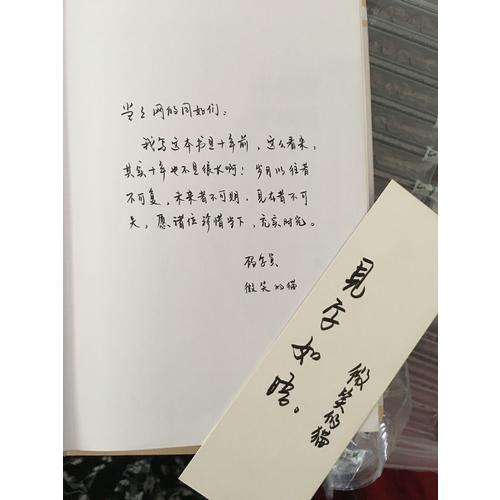 当之网的同好们：
我写这本书是十年前，这么看来，
其实十年也不是很长啊！岁月以往昔
不可复，未来者不可期，见在者不可
失，愿诸位珍惜当下，充实时光。
码字员
微笑的猫
見字如晤。
微笑的猫